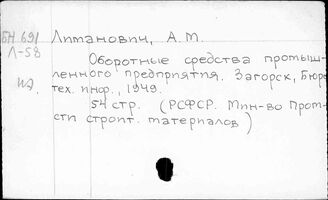 БН 691 Лиманович, А.М.
Л-58
Оборотные средства промыш-
ленного предприятия. Загорск, Бюро
тех. инф., 1949.
54 стр. (РСФСР. Мин-во Пром-
сти строит. материалов)